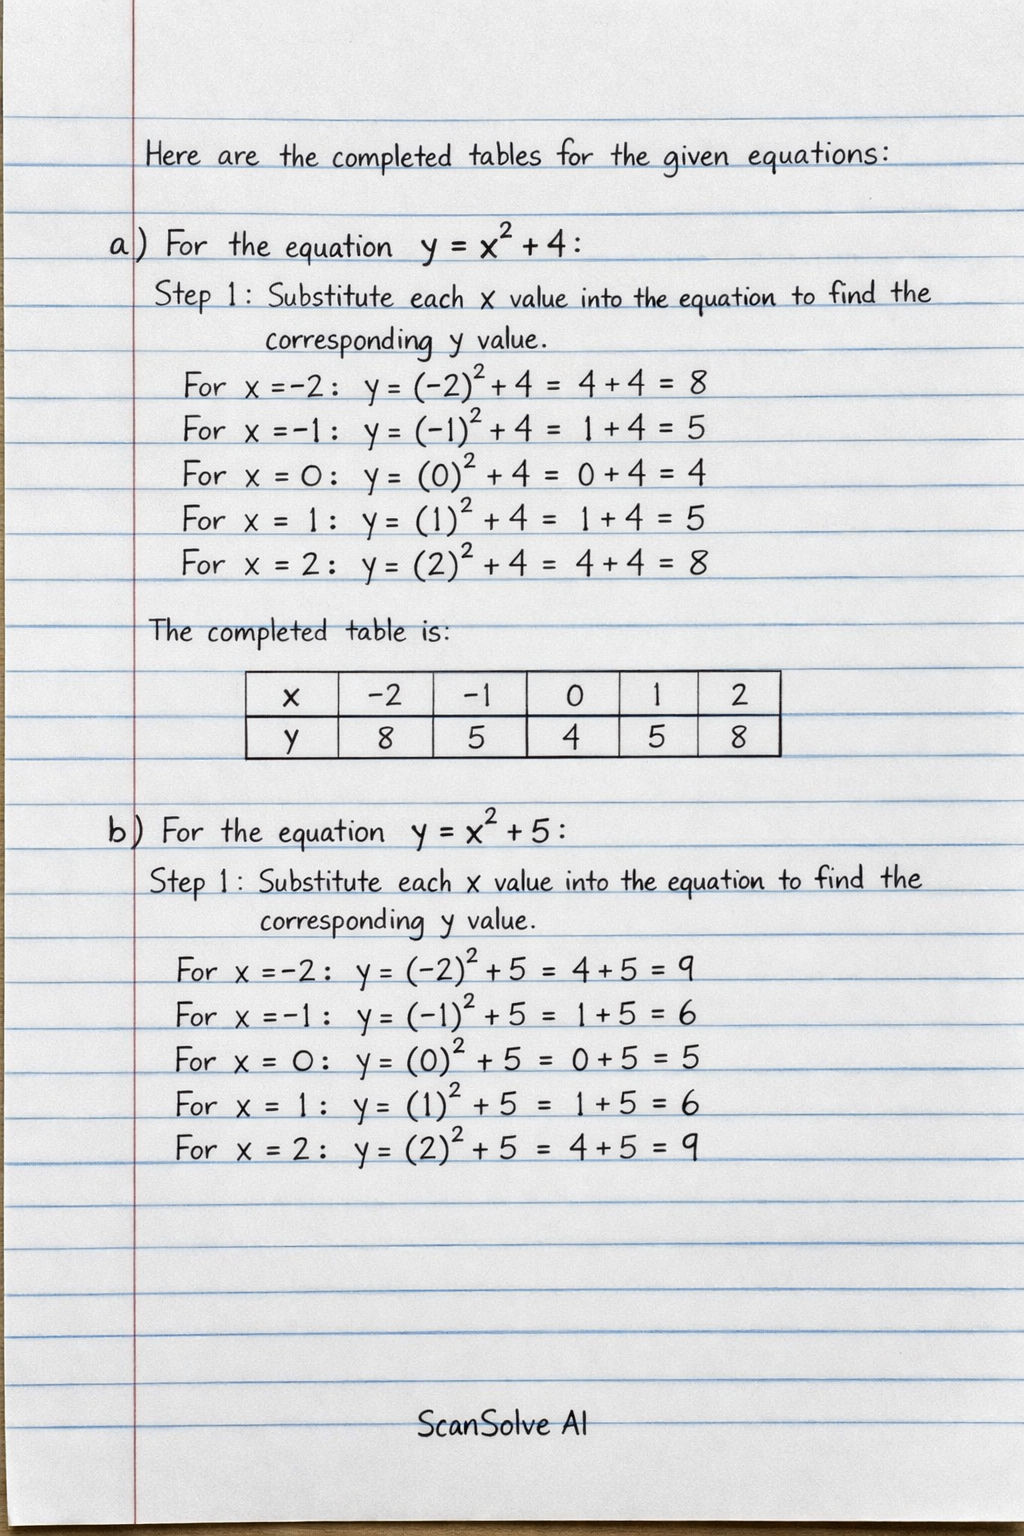 Here are the completed tables for the given equations:
a) For the equation y = x² + 4:
Step 1: Substitute each x value into the equation to find the
corresponding y value.
For x = -2: y = (-2)² + 4 = 4 + 4 = 8
For x = -1: y = (-1)² + 4 = 1 + 4 = 5
For x = 0: y = (0)² + 4 = 0 + 4 = 4
For x = 1: y = (1)² + 4 = 1 + 4 = 5
For x = 2: y = (2)² + 4 = 4 + 4 = 8
The completed table is:
x -2 -1 0 1 2
y 8 5 4 5 8
b) For the equation y = x² + 5:
Step 1: Substitute each x value into the equation to find the
corresponding y value.
For x = -2: y = (-2)² + 5 = 4 + 5 = 9
For x = -1: y = (-1)² + 5 = 1 + 5 = 6
For x = 0: y = (0)² + 5 = 0 + 5 = 5
For x = 1: y = (1)² + 5 = 1 + 5 = 6
For x = 2: y = (2)² + 5 = 4 + 5 = 9
ScanSolve AI